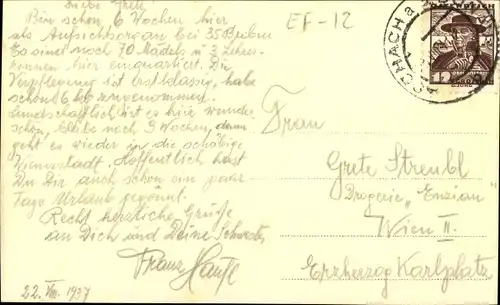 Liebe Grete!
Bin schon 6 Wochen hier
als Aufsichtsorgan bei 35 Buben
Es sind noch 70 Mädels u. 3 Lehre-
rinnen hier einquartiert. Die
Verpflegung ist erstklassig, habe
schon 6 kg zugenommen.
Landschaftlich ist es hier wunder
schön, bleibe noch 3 Wochen, dann
geht es wieder in die schäbige
Wienerstadt. Hoffentlich hast
Du Dir auch schon ein paar
Tage Urlaub gegönnt.
Recht herzliche Grüße
an Dich und Deine Schwester
Franz
22. VIII. 1937
EF-12
ASCHACH a
ÖSTERREICH
12
Frau
Grete Streubl
Drogerie "Enzian"
Wien II.
Erzherzog Karlplatz